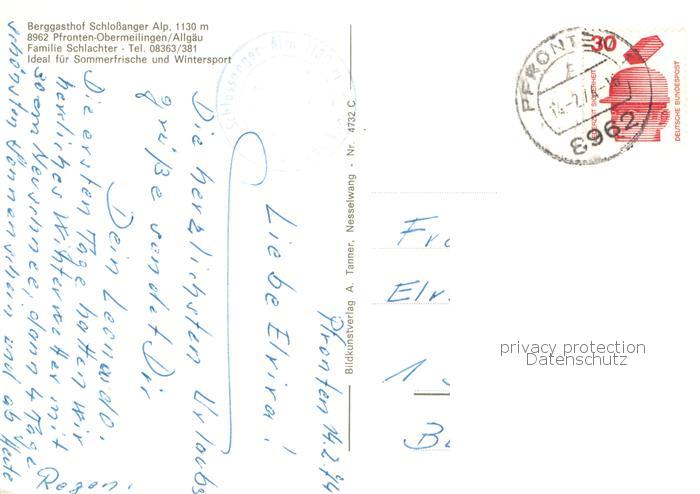 Berggasthof Schloßanger Alp, 1130 m
8962 Pfronten-Obermeilingen/Allgäu
Familie Schlachter - Tel. 08363/381
Ideal für Sommerfrische und Wintersport
Pfronten 14.2.74
Liebe Elvira!
Die herzlichsten Urlaubs
grüße sendet Dir
Dein Leonardo.
Die ersten Tage hatten wir
herrliches Winterwetter mit
30 cm Neuschnee, dann 4 Tage
schönsten Sonnenschein und ab Heute
Regen.
Bildkunstverlag A. Tanner, Nesselwang - Nr. 4732 C
PFRONTEN
8962
30
DEUTSCHE BUNDESPOST
Elv
1
privacy protection
Datenschutz